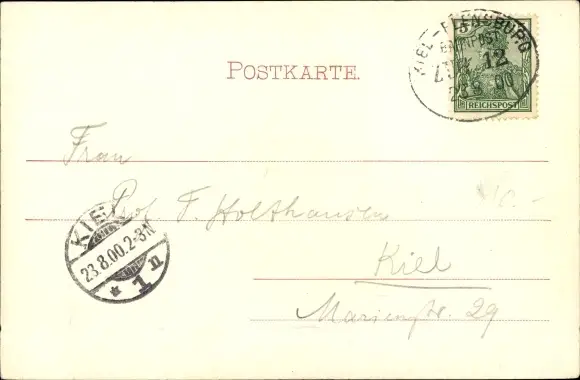 KIEL-FLENSBURG
BAHNPOST
ZUG 12
23 8 00
REICHSPOST
POSTKARTE.
Frau
Prof. F. Holthausen
Kiel
Marienstr. 29
KIEL
23.8.00.2-3N
* 1 n